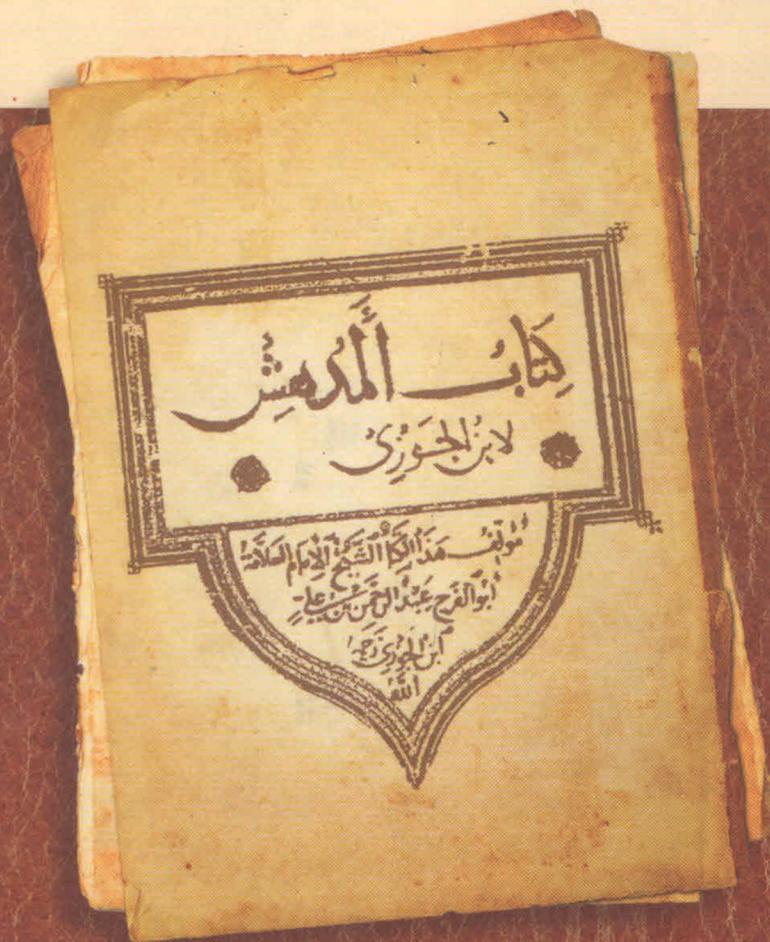 كِتَابُ المُدهِشِ
لابنِ الجَوزِي
مُؤَلِّفُ هَذَا الكِتَابِ الشَّيْخُ الإِمَامُ العَلَّامَةُ
أَبُو الفَرَجِ عَبْدُ الرَّحْمَنِ بْنُ عَلِيّ
ابْنُ الجَوْزِي رَحِمَهُ
اللَّهُ